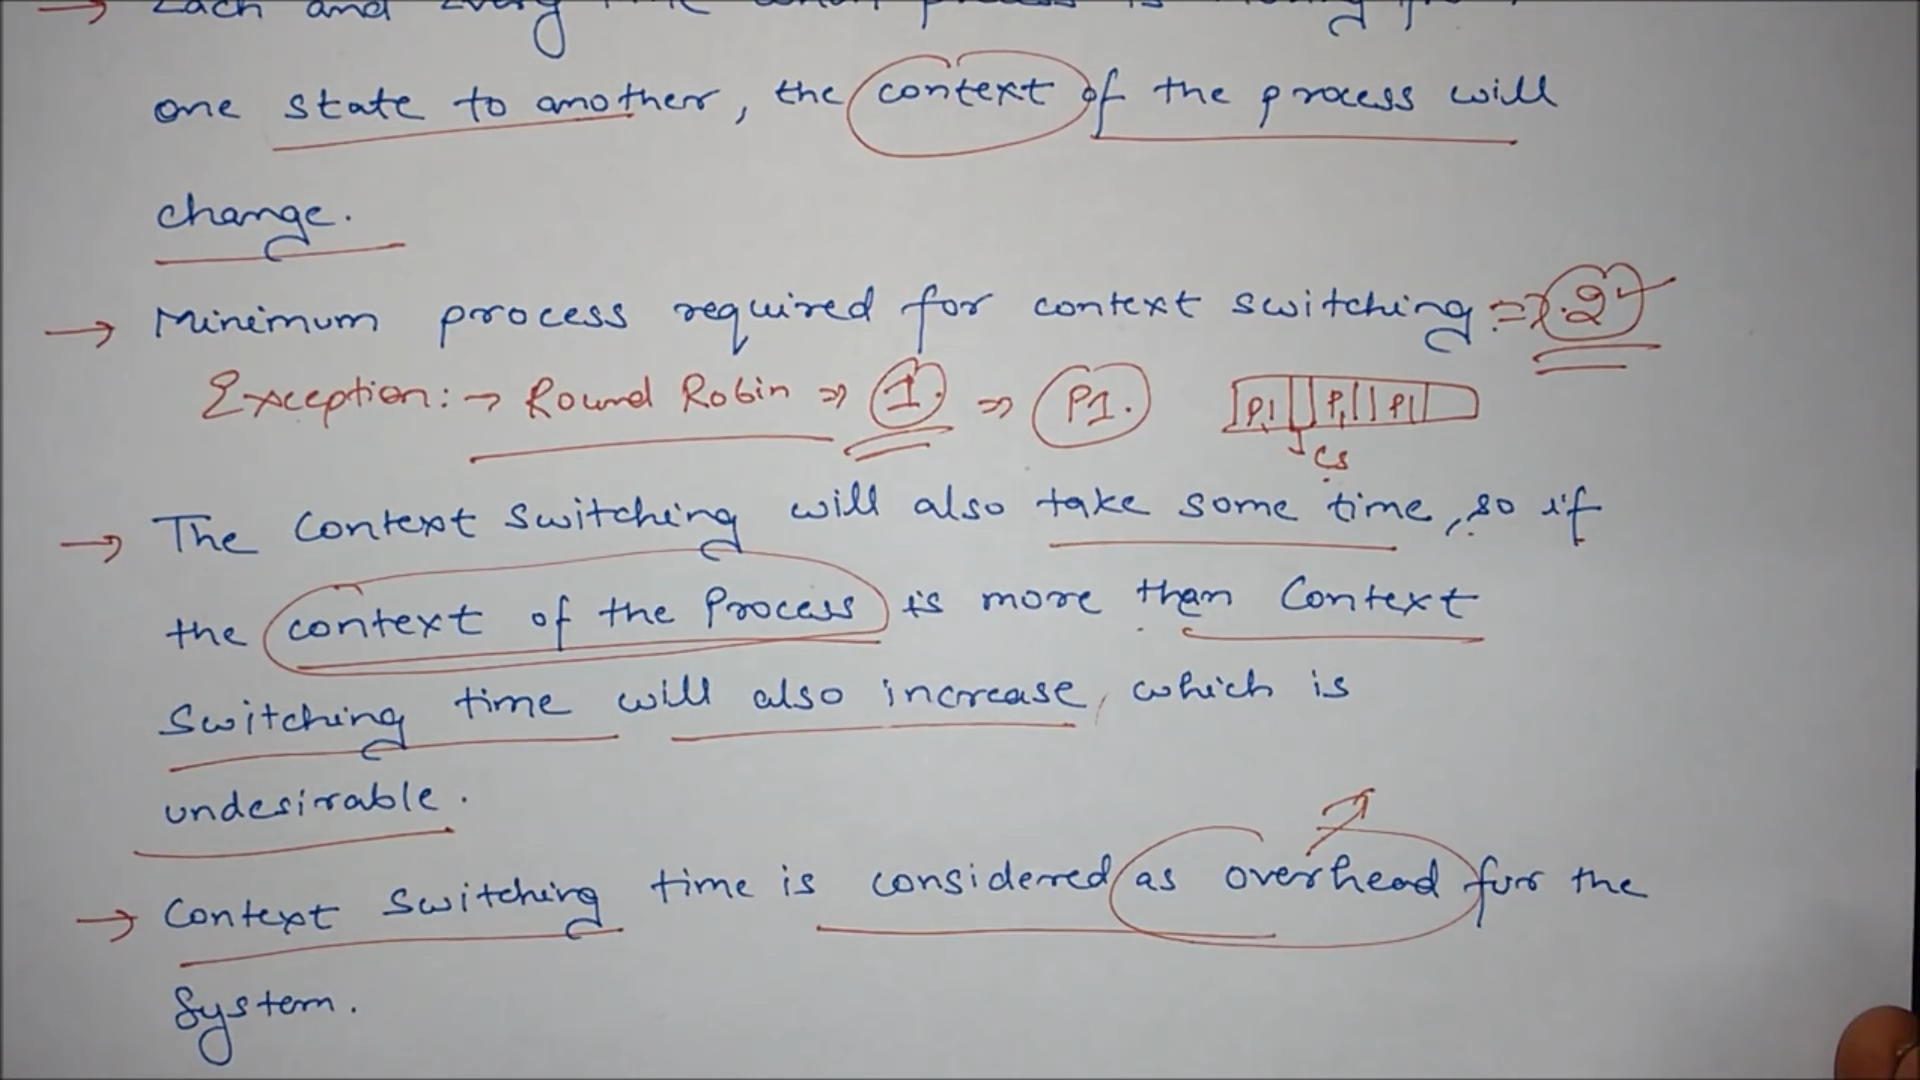 → Each and Every time when process is moving from
one state to another, the context of the process will
change.
→ Minimum process required for context switching => 2
Exception: → Round Robin => 1. => P1. P1 P1 P1
CS
→ The Context switching will also take some time, so if
the context of the Process is more than Context
Switching time will also increase, which is
undesirable.
→ Context Switching time is considered as overhead for the
System.